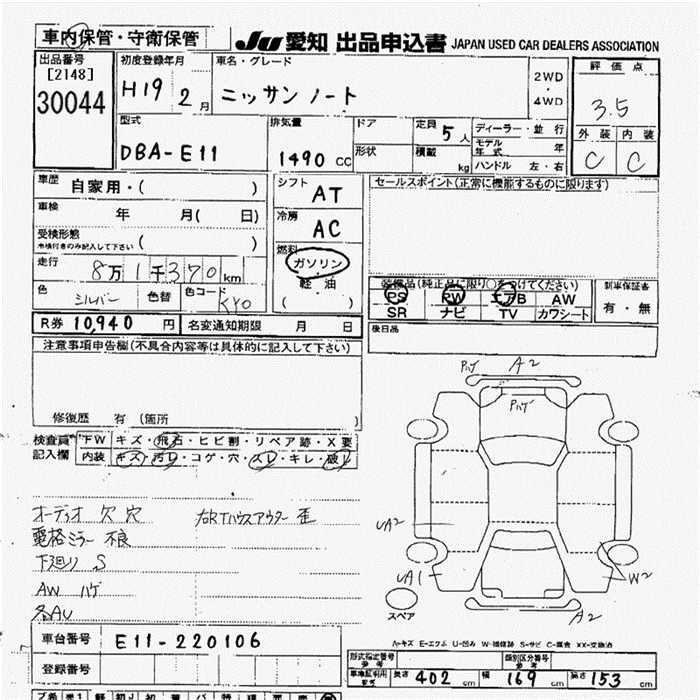 車内保管・守衛保管
JU 愛知 出品申込書 JAPAN USED CAR DEALERS ASSOCIATION
出品番号
[2148]
30044
初度登録年月
H19 2月
車名・グレード
ニッサン ノート
2WD
・
4WD
評価点
3.5
外装 内装
C C
型式
DBA-E11
排気量
1490 cc
ドア
形状
定員 5人
積載 kg
ディーラー・並行
モデル年式 年
ハンドル 左・右
車歴
自家用・( )
車検
年 月( 日)
受検形態
( )
走行
8万1千370km
色
シルバー
色替
色コード
KY0
シフト
AT
冷房
AC
燃料
ガソリン
軽油
( )
セールスポイント(正常に機能するものに限ります)
装備品(純正品に限り○をつけてください)
PS PW エアB AW
SR ナビ TV カワシート
新車保証書
有・無
後日品
R券 10,940 円
名変通知期限 月 日
注意事項申告欄(不具合内容等は具体的に記入して下さい)
修復歴 有(箇所 )
検査員記入欄
FW キズ・飛石・ヒビ割・リペア跡・X要
内装 キズ・汚レ・コゲ・穴・スレ・キレ・破レ
オーディオ 欠 穴
右RTハウスアウター 歪
電格ミラー 不良
下廻り S
AW ハゲ
各AU
ハゲ A2
ハゲ
UA2
UA1
W2
A2
スペア
A-キズ E-エクボ U-凹み W-補修跡 S-サビ C-腐食 XX-交換済
車台番号 E11-220106
登録番号
形式指定番号
参考
類別区分番号
参考
車庫証明用
参考
長さ 402 cm
幅 169 cm
高さ 153 cm